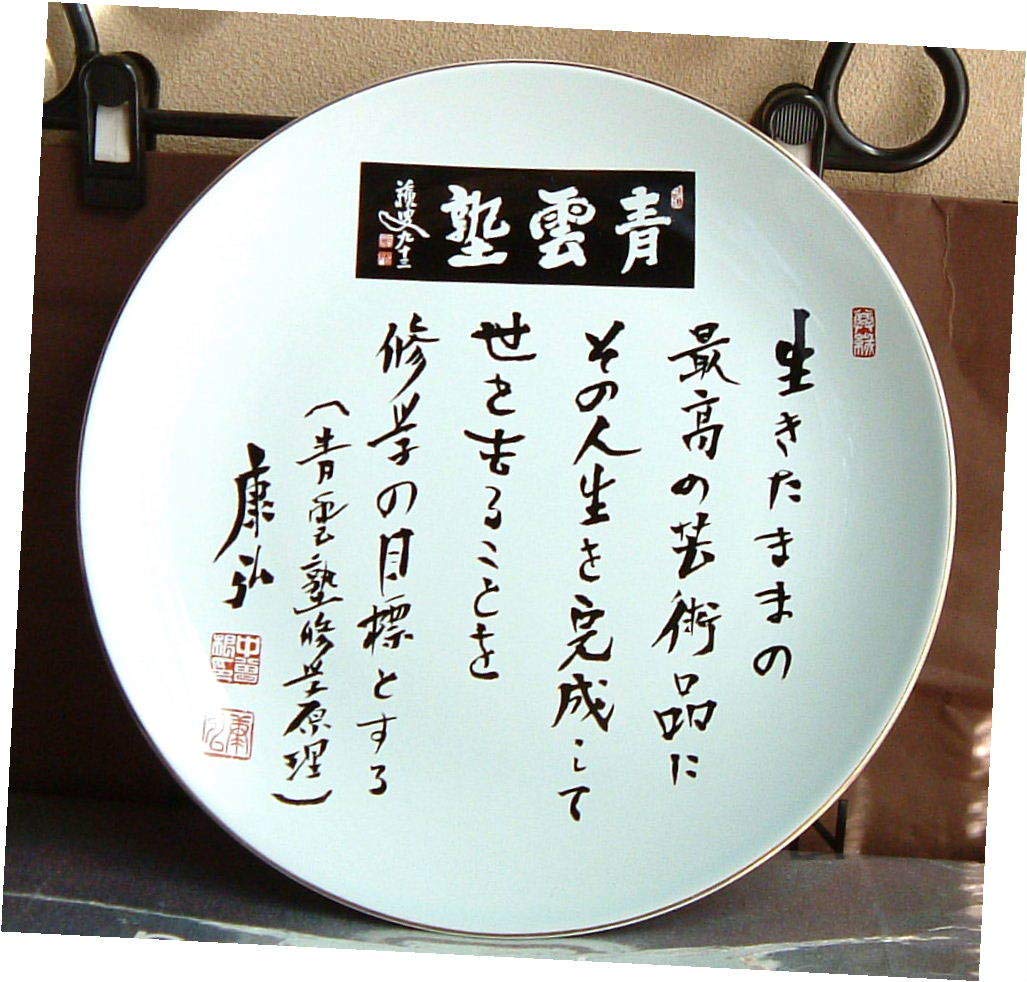 青雲塾
生きたままの
最高の芸術品に
その人生を完成して
世を去ることを
修学の目標とする
（青雲塾修学原理）
康弘
康弘